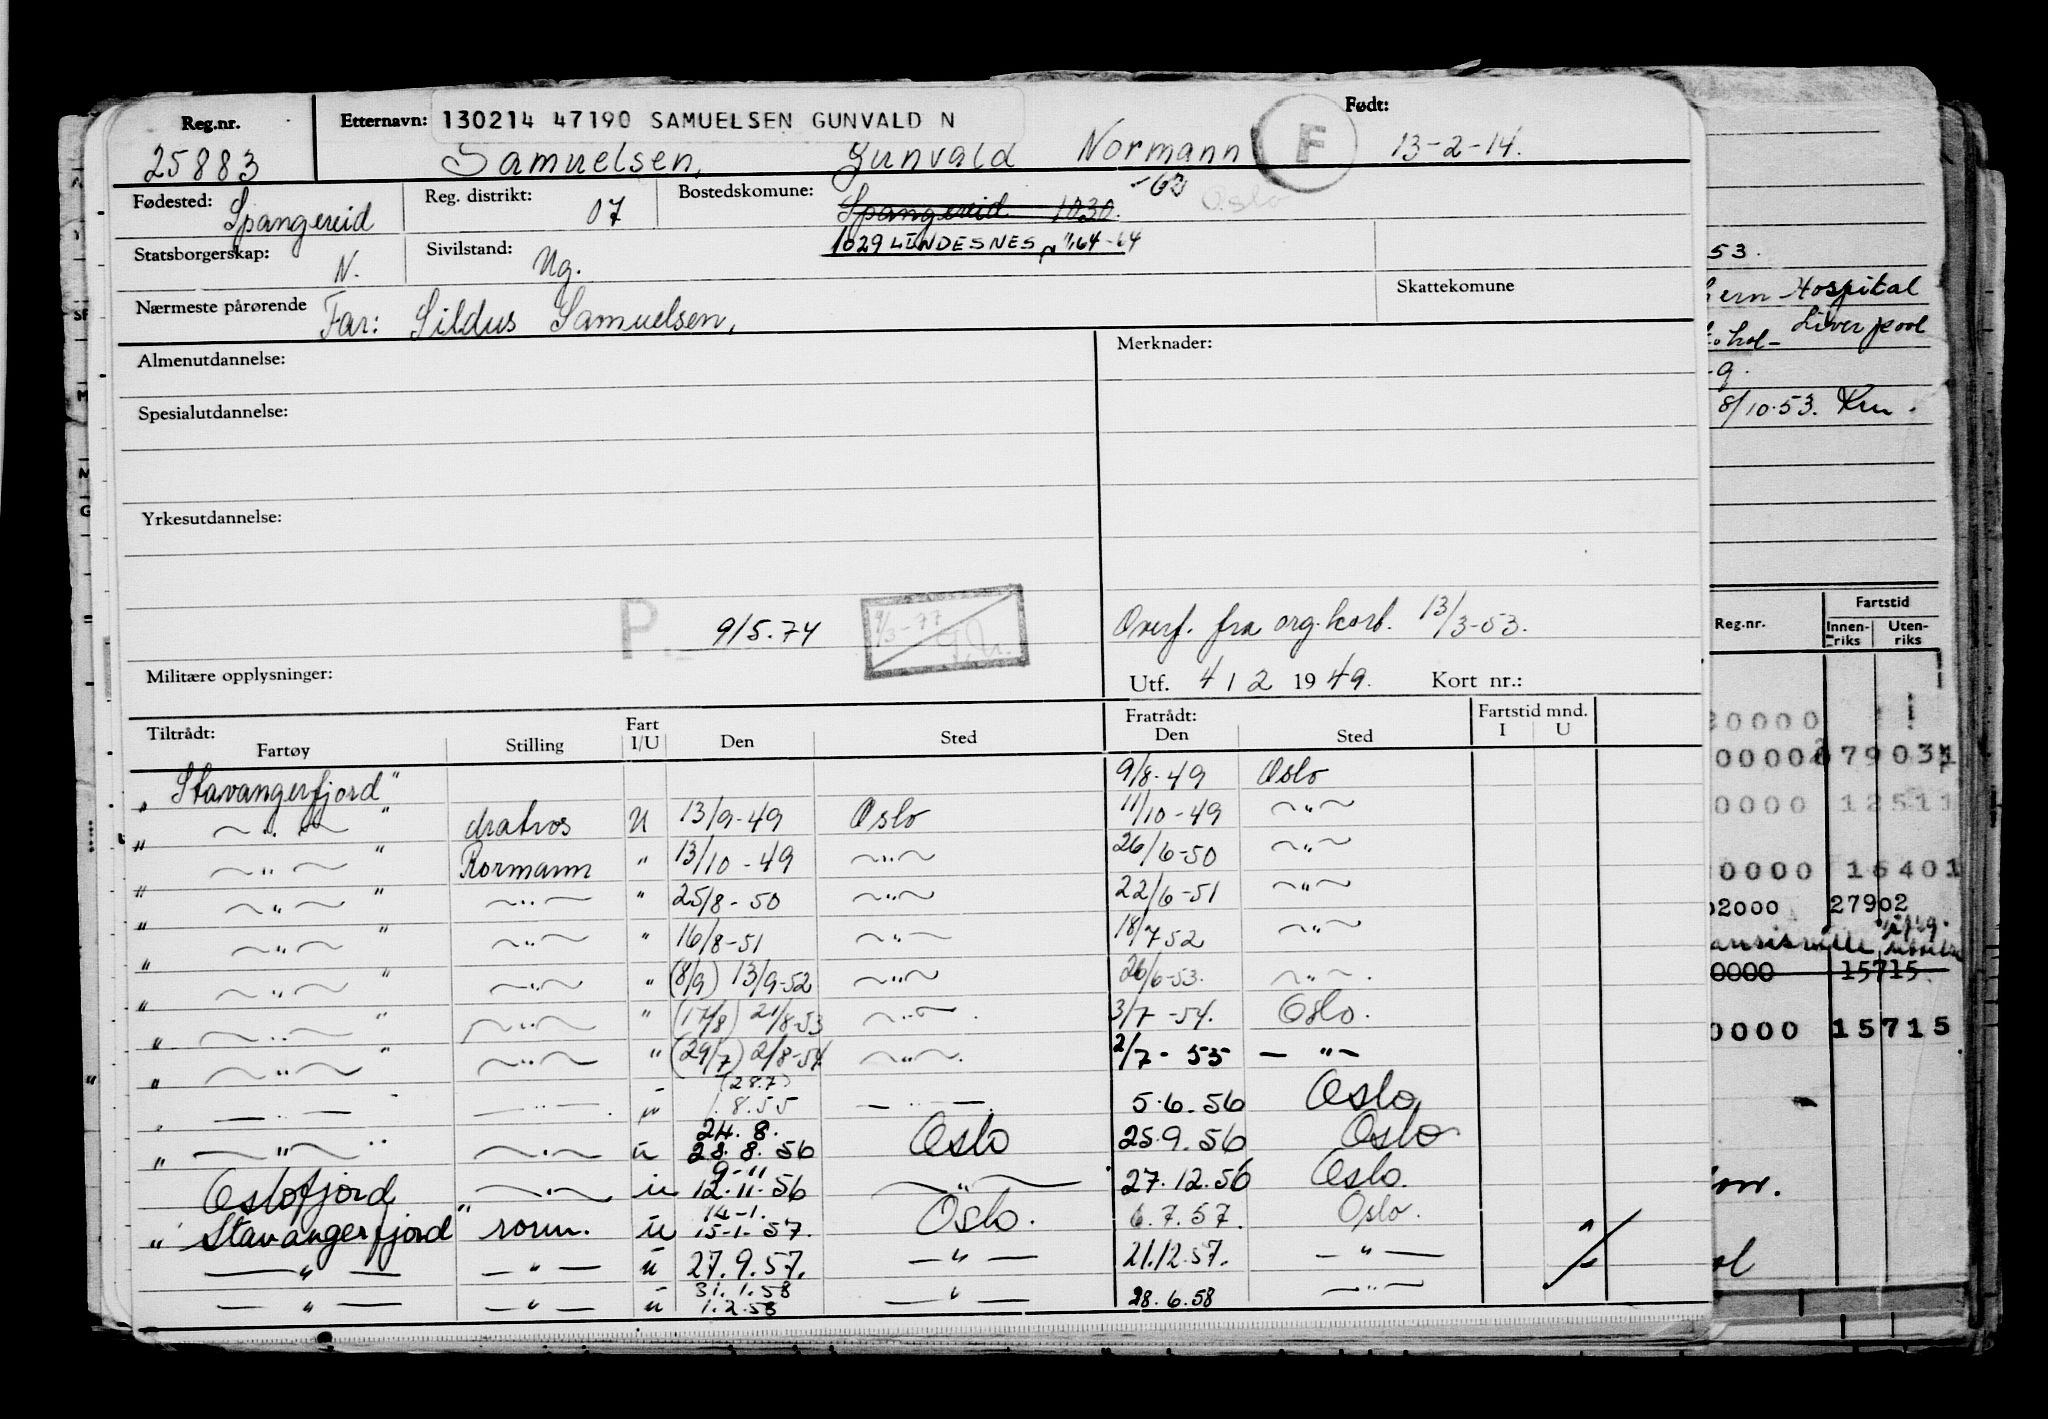 Reg.nr. Etternavn: 130214 47190 SAMUELSEN GUNVALD N Født:
25883 Samuelsen, Gunvald Normann F 13-2-14.
Fødested: Spangereid Reg. distrikt: 07 Bostedskomune: Spangereid 1030. -63 Oslo
1029 LINDESNES
Statsborgerskap: N. Sivilstand: Ug.
Nærmeste pårørende Far: Sildus Samuelsen, Skattekomune
Almenutdannelse: Merknader:
Spesialutdannelse:
Yrkesutdannelse:
P. 9/5.74 9/3-77 Overf. fra org.kort. 13/3-53.
Militære opplysninger: Utf. 4 / 2 1949. Kort nr.:
Tiltrådt: Fart Fratrådt: Fartstid mnd.
Fartøy Stilling I/U Den Sted Den Sted I U
" Stavangerfjord" 9/8-49 Oslo
" —"— " Matros U 13/9-49 Oslo 11/10-49 —"—
" —"— " Rormann " 13/10-49 —"— 26/6-50 —"—
" —"— " —"— " 25/8-50 —"— 22/6-51 —"—
" —"— " —"— " 16/8-51 —"— 18/7 52 —"—
" —"— " —"— " (8/9) 13/9-52 —"— 26/6-53. —"—.
" —"— " —"— " (17/8) 21/8-53 —"—. 3/7-54. Oslo.
" —"— " —"— " (29/7) 2/8-54 —"—. 2/7-55 — "—
(28.7)
" —"— —"—. u 1.8.55 —"—. 5.6.56 Oslo
24.8.
" —"— " —"— u 28.8.56 Oslo 25.9.56 Oslo
9-11
Oslofjord —"— u 12.11.56 —"— 27.12.56 Oslo.
14-1.
" Stavangerfjord" rorm. u 15-1-57. Oslo. 6.7.57. Oslo.
—"— —"— u 27.9.57. —"— 21.12.57. —"—
31.1.58
—"— —"— u 1.2.58 —"— 28.6.58 —"—
53.
Hospital
Liverpool
8/10.53.
Fartstid
Reg.nr. Innen-riks Uten-riks
0000 12511
0000 16401
02000 27902
0000 15715
0000 15715